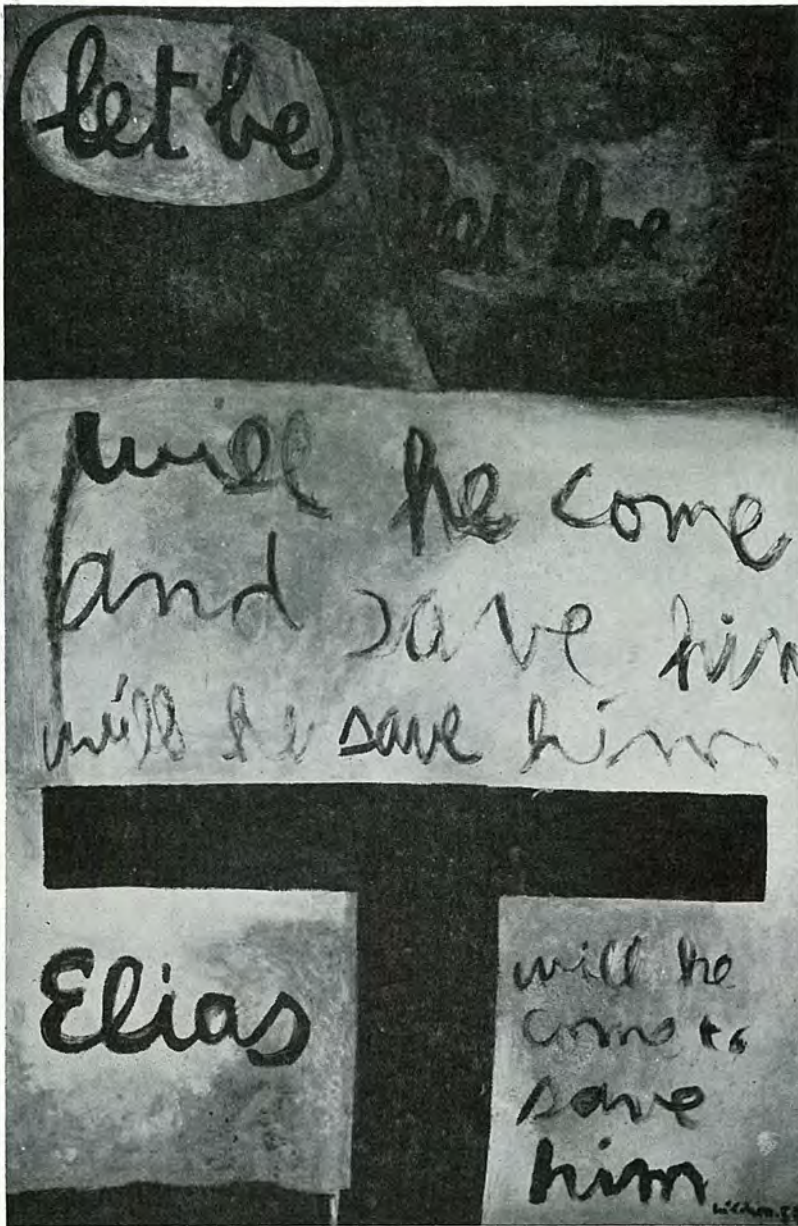 let be
let be
will he come
and save him
will he save him
Elias
will he
come to
save
him